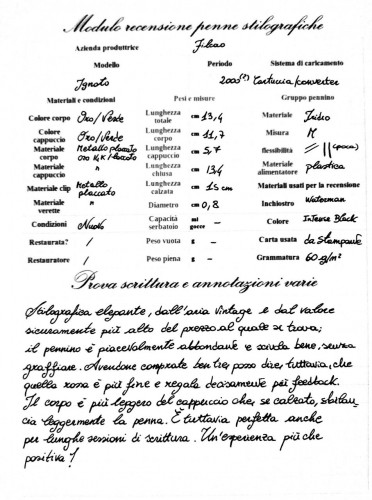 Modulo recensione penne stilografiche
Azienda produttrice Filcao
Modello Periodo Sistema di caricamento
Ignoto 2000(?) Cartuccia/converter
Materiali e condizioni Pesi e misure Gruppo pennino
Colore corpo Oro/Verde Lunghezza totale cm 13,4 Materiale Iridio
Colore cappuccio Oro/Verde Lunghezza corpo cm 11,7 Misura M
Materiale corpo Metallo placcato oro KK/laccato Lunghezza cappuccio cm 5,7 flessibilità // (poca)
Materiale cappuccio " Lunghezza chiusa cm 13,4 Materiale alimentatore plastica
Materiale clip Metallo placcato Lunghezza calzata cm 15 cm Materiali usati per la recensione
Materiale verette " Diametro cm 0,8 Inchiostro Waterman
Condizioni Nuovo Capacità serbatoio ml gocce - Colore Intense Black
Restaurata? / Peso vuota g - Carta usata da stampante
Restauratore / Peso piena g - Grammatura 60 g/m²
Prova scrittura e annotazioni varie
Stilografica elegante, dall'aria vintage e dal valore
sicuramente più alto del prezzo al quale si trova;
il pennino è piacevolmente abbondante e scivola bene, senza
graffiare. Avendone comprate ben tre, posso dire, tuttavia, che
quella rossa è più fine e regala decisamente più feedback.
Il corpo è più leggero del cappuccio che, se calzato, sbilan-
cia leggermente la penna. È tuttavia perfetta anche
per lunghe sessioni di scrittura. Un'esperienza più che
positiva!